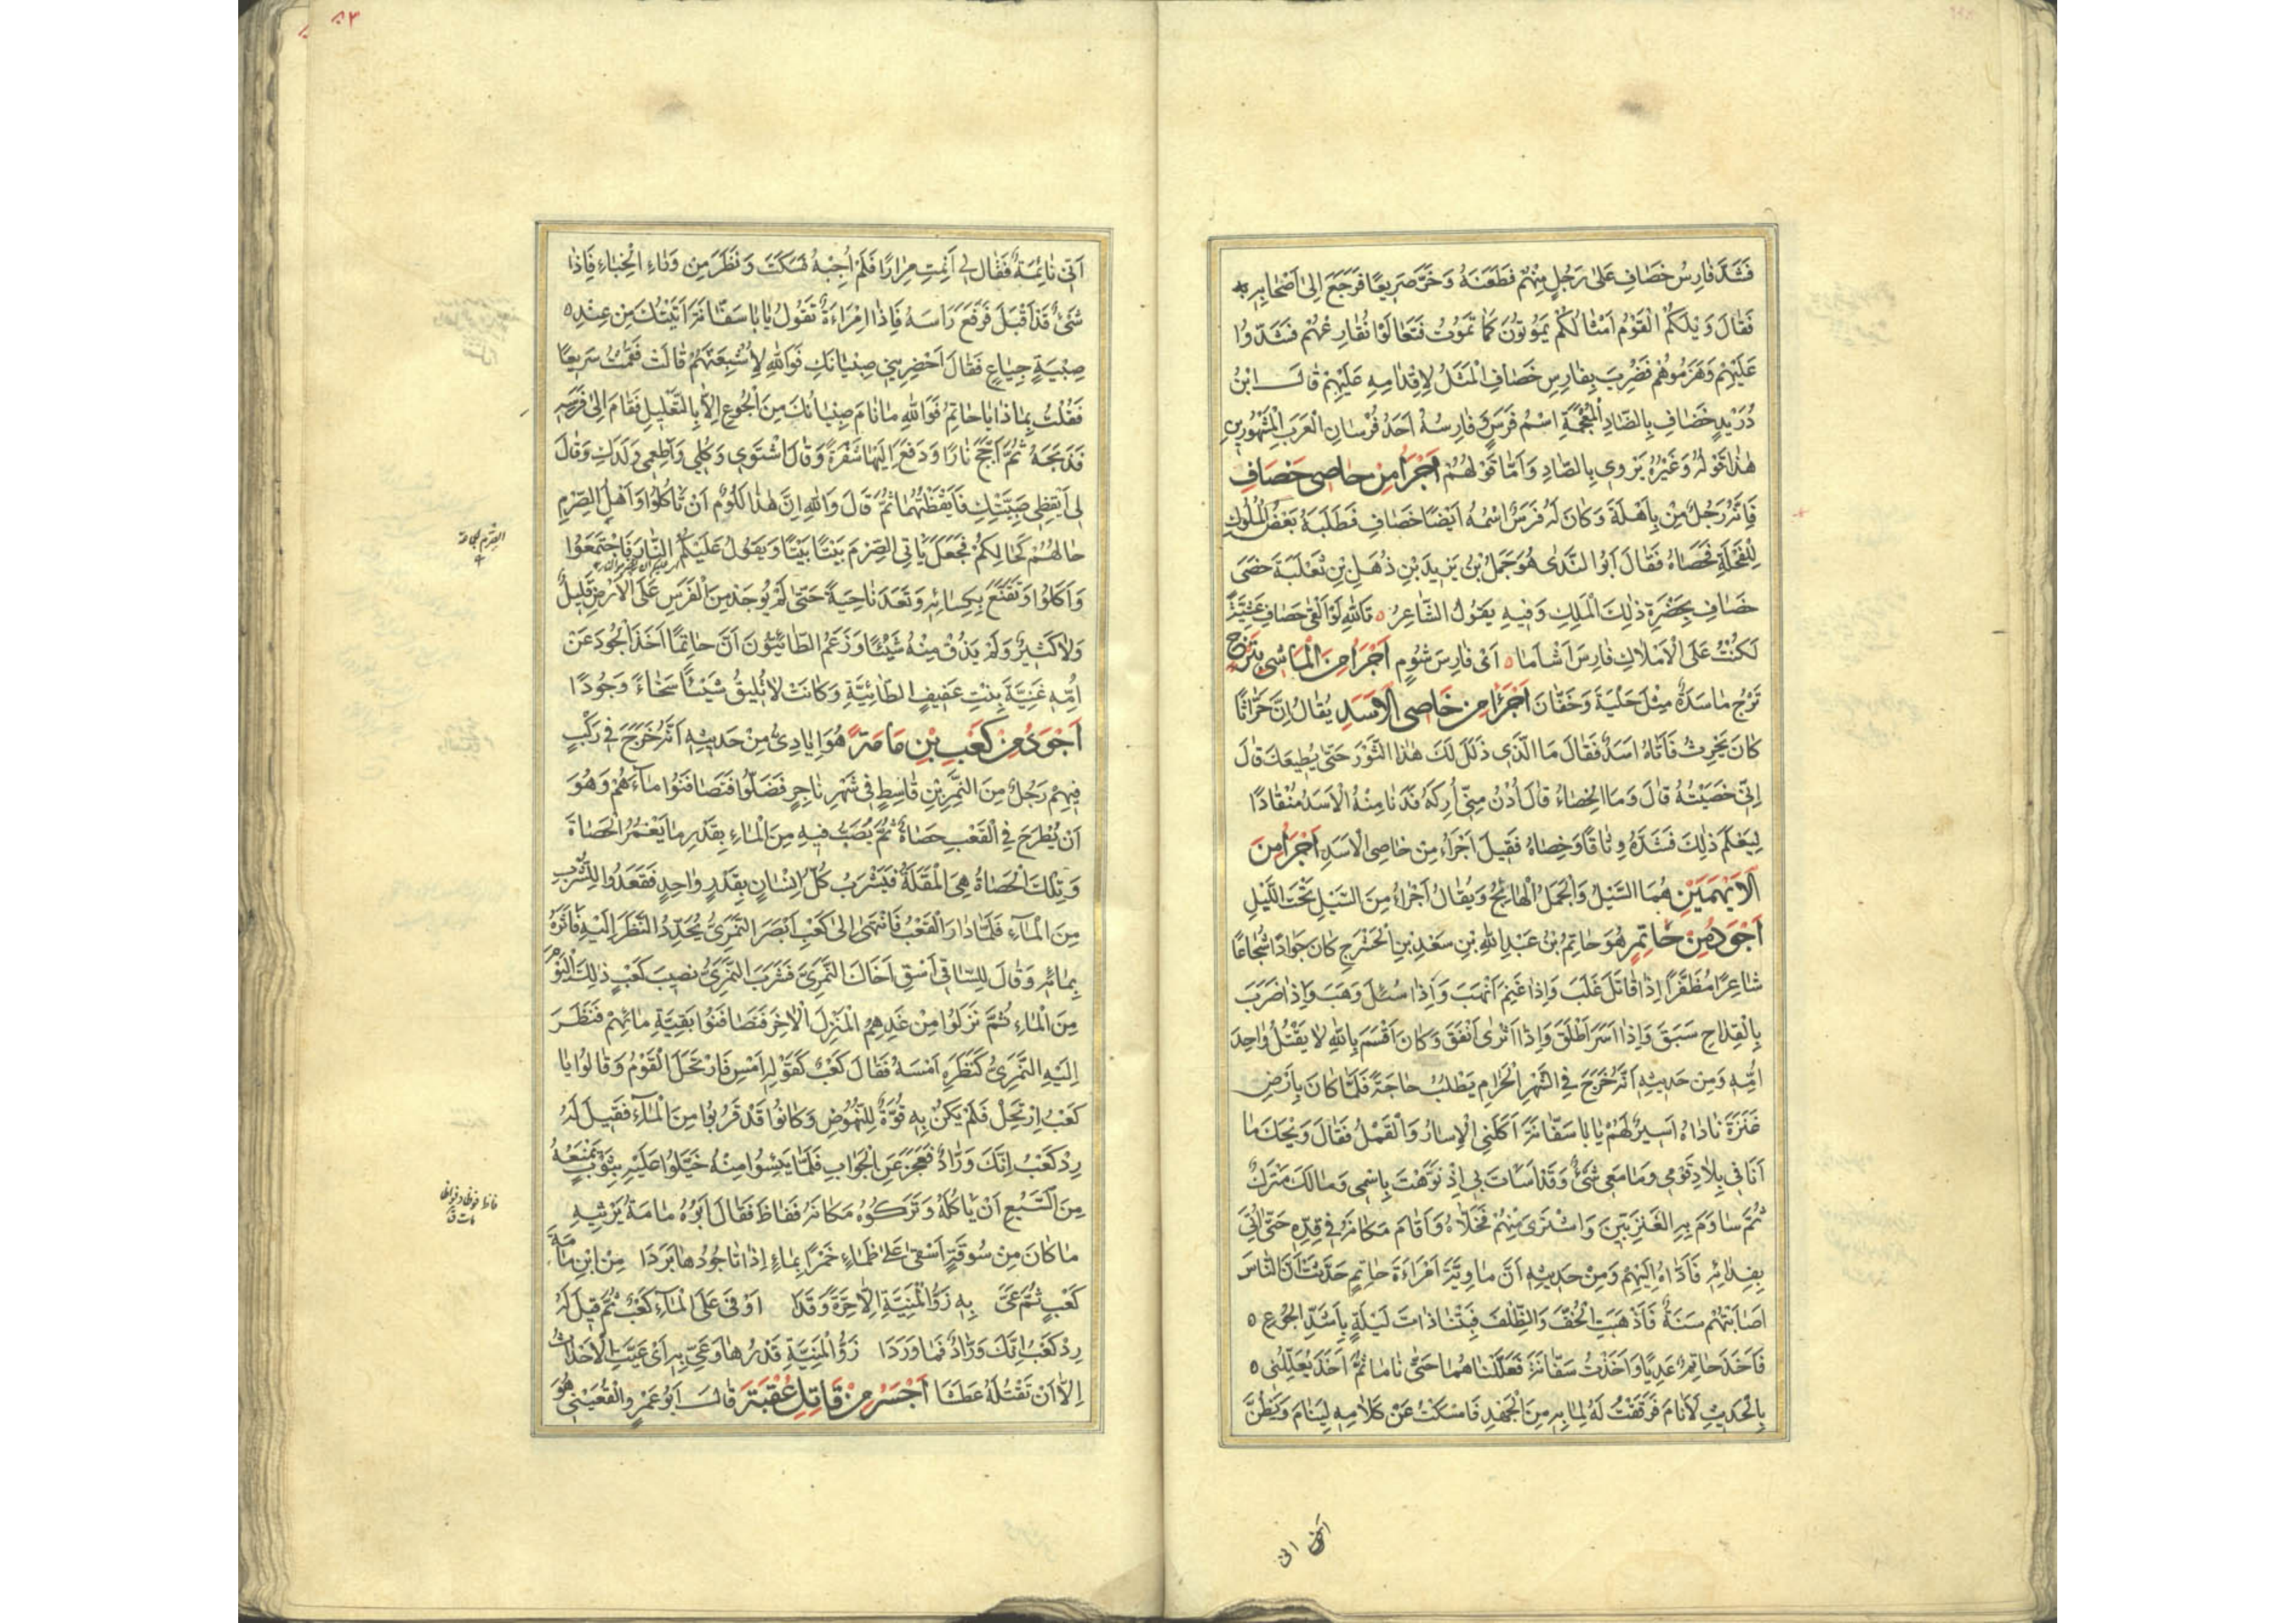 فَشَدَّ فَارِسُ خَصَافِ عَلَى رَجُلٍ مِنْهُمْ فَطَعَنَهُ وَخَرَّ صَرِيعًا فَرَجَعَ إِلَى أَصْحَابِهِ
فَقَالَ وَيْلَكُمُ الْقَوْمُ أَمْثَالُكُمْ يَمُوتُونَ كَمَا تَمُوتُ فَتَعَالَوْا نُقَارِعْهُمْ فَشَدُّوا
عَلَيْهِمْ وَهَزَمُوهُمْ فَضُرِبَ بِفَارِسِ خَصَافِ الْمَثَلُ لِإِقْدَامِهِ عَلَيْهِمْ قَالَ ابْنُ
دُرَيْدٍ خَضَافِ بِالضَّادِ الْمُعْجَمَةِ اسْمُ فَرَسٍ وَفَارِسُهُ أَحَدُ فُرْسَانِ الْعَرَبِ الْمَشْهُورِينَ
هٰذَا قَوْلُهُ وَغَيْرُهُ يَرْوِي بِالصَّادِ وَأَمَّا قَوْلُهُمْ أَجْرَأُ مِنْ خَاصِي خَصَافِ
فَإِنَّهُ رَجُلٌ مِنْ بَاهِلَةَ وَكَانَ لَهُ فَرَسٌ اسْمُهُ أَيْضًا خَصَافِ فَطَلَبَهُ بَعْضُ الْمُلُوكِ
لِلْفِحْلَةِ فَخَصَاهُ فَقَالَ أَبُو النَّدَى هُوَ حَمَلُ بْنُ يَزِيدَ بْنِ ذُهْلِ بْنِ ثَعْلَبَةَ خَصَى
خَصَافِ بِحَضْرَةِ ذٰلِكَ الْمَلِكِ وَفِيهِ يَقُولُ الشَّاعِرُ ٥ تَاللهِ لَوْ أَلْقَى خَصَافِ عَشِيَّةً
لَكُنْتُ عَلَى الْأَمْلَاكِ فَارِسَ أَشْأَمَا ٥ أَىْ فَارِسَ شُومٍ أَجْرَأُ مِنَ الْمَاشِي بِتَرْجٍ
تَرْجُ مَاسَدَةٌ مِثْلَ حَلْيَةَ وَخَفَّانَ أَجْرَأُ مِنْ خَاصِي الْأَسَدِ يُقَالُ إِنَّ حَرَّاثًا
كَانَ يَحْرِثُ فَأَتَاهُ أَسَدٌ فَقَالَ مَا الَّذِي ذَلَّلَ لَكَ هٰذَا الثَّوْرَ حَتَّى يُطِيعَكَ قَالَ
إِنِّي خَصَيْتُهُ قَالَ وَمَا الْخِصَاءُ قَالَ أُدْنُ مِنِّي أُرِكَهُ فَدَنَا مِنْهُ الْأَسَدُ مُنْقَادًا
لِيَعْلَمَ ذٰلِكَ فَشَدَّهُ وِثَاقًا وَخَصَاهُ فَقِيلَ أَجْرَءُ مِنْ خَاصِي الْأَسَدِ أَجْرَأُ مِنَ
الْأَيْهَمَيْنِ هُمَا السَّيْلُ وَالْجَمَلُ الْهَائِجُ وَيُقَالُ أَجْرَءُ مِنَ السَّيْلِ تَحْتَ اللَّيْلِ
أَجْوَدُ مِنْ حَاتِمٍ هُوَ حَاتِمُ بْنُ عَبْدِ اللهِ بْنِ سَعْدِ بْنِ الْحَشْرَجِ كَانَ جَوَادًا شُجَاعًا
شَاعِرًا مُظَفَّرًا إِذَا قَاتَلَ غَلَبَ وَإِذَا غَنِمَ أَنْهَبَ وَإِذَا سُئِلَ وَهَبَ وَإِذَا ضَرَبَ
بِالْقِدَاحِ سَبَقَ وَإِذَا أَسَرَ أَطْلَقَ وَإِذَا أَثْرَى أَنْفَقَ وَكَانَ أَقْسَمَ بِاللهِ لَا يَقْتُلُ وَاحِدَ
أُمِّهِ وَمِنْ حَدِيثِهِ أَنَّهُ خَرَجَ فِي الشَّهْرِ الْحَرَامِ يَطْلُبُ حَاجَةً فَلَمَّا كَانَ بِأَرْضِ
عَنَزَةَ نَادَاهُ أَسِيرٌ لَهُمْ يَا بَا سَفَّانَةَ أَكَلَنِي الْإِسَارُ وَالْقَمْلُ فَقَالَ وَيْحَكَ مَا
أَنَا فِي بِلَادِ قَوْمِي وَمَا مَعِي شَيْءٌ وَقَدْ أَسَأْتَ بِي إِذْ نَوَّهْتَ بِاسْمِي وَمَا لَكَ مَتْرَكٌ
ثُمَّ سَاوَمَ بِهِ الْعَنَزِيِّينَ وَاشْتَرَى مِنْهُمْ فَخَلَّاهُ وَأَقَامَ مَكَانَهُ فِي قِدِّهِ حَتَّى أُتِيَ
بِفِدَائِهِ فَأَدَّاهُ إِلَيْهِمْ وَمِنْ حَدِيثِهِ أَنَّ مَاوِيَّةَ امْرَاءَةَ حَاتِمٍ حَدَّثَتْ أَنَّ النَّاسَ
أَصَابَتْهُمْ سَنَةٌ فَأَذْهَبَتِ الْخُفَّ وَالظِّلْفَ فَبِتْنَا ذَاتَ لَيْلَةٍ بِأَشَدِّ الْجُوعِ ٥
فَأَخَذَ حَاتِمٌ عَدِيًّا وَأَخَذْتُ سَفَّانَةَ فَعَلَّلْنَاهُمَا حَتَّى نَامَا ثُمَّ أَخَذَ يُعَلِّلُنِي ٥
بِالْحَدِيثِ لِأَنَامَ فَرَقَقْتُ لَهُ لِمَا بِهِ مِنَ الْجَهْدِ فَأَمْسَكْتُ عَنْ كَلَامِهِ لِيَنَامَ وَيَظُنَّ
أَنِّي
٨٣
أَنِّي نَائِمَةٌ فَقَالَ لِي أَنِمْتِ مِرَارًا فَلَمْ أُجِبْهُ فَسَكَتَ وَنَظَرَ مِنْ وَرَاءِ الْخِبَاءِ فَإِذَا
شَيْءٌ قَدْ أَقْبَلَ فَرَفَعَ رَأْسَهُ فَإِذَا امْرَاءَةٌ تَقُولُ يَا بَا سَفَّانَةَ أَتَيْتُكَ مِنْ عِنْدِ ٥
صِبْيَةٍ جِيَاعٍ فَقَالَ أَحْضِرِينِي صِبْيَانَكِ فَوَاللهِ لَأُشْبِعَنَّهُمْ قَالَتْ فَقُمْتُ سَرِيعًا
فَقُلْتُ بِمَاذَا يَا حَاتِمُ فَوَاللهِ مَا نَامَ صِبْيَانُكَ مِنَ الْجُوعِ إِلَّا بِالتَّعْلِيلِ فَقَامَ إِلَى فَرَسِهِ
فَذَبَحَهُ ثُمَّ أَجَّجَ نَارًا وَدَفَعَ إِلَيْهَا شَفْرَةً وَقَالَ اشْتَوِي وَكُلِي وَأَطْعِمِي وَلَدَكِ وَقَالَ
لِي أَيْقِظِي صِبْيَتَكِ فَأَيْقَظْتُهُمَا ثُمَّ قَالَ وَاللهِ إِنَّ هٰذَا لَلُؤْمٌ أَنْ تَأْكُلُوا وَأَهْلُ الصِّرْمِ
حَالُهُمْ كَحَالِكُمْ فَجَعَلَ يَأْتِي الصِّرْمَ بَيْتًا بَيْتًا وَيَقُولُ عَلَيْكُمُ النَّارَ فَاجْتَمَعُوا
وَأَكَلُوا وَتَقَنَّعَ بِكِسَائِهِ وَقَعَدَ نَاحِيَةً حَتَّى لَمْ يُوجَدْ مِنَ الْفَرَسِ عَلَى الْأَرْضِ قَلِيلٌ
وَلَا كَثِيرٌ وَلَمْ يَذُقْ مِنْهُ شَيْئًا وَزَعَمَ الطَّائِيُّونَ أَنَّ حَاتِمًا أَخَذَ الْجُودَ عَنْ
أُمِّهِ غَنِيَّةَ بِنْتِ عَفِيفٍ الطَّائِيَّةِ وَكَانَتْ لَا تُلِيقُ شَيْئًا سَخَاءً وَجُودًا
أَجْوَدُ مِنْ كَعْبِ بْنِ مَامَةَ هُوَ إِيَادِيٌّ مِنْ حَدِيثِهِ أَنَّهُ خَرَجَ فِي رَكْبٍ
فِيهِمْ رَجُلٌ مِنَ النَّمِرِ بْنِ قَاسِطٍ فِي شَهْرِ نَاجِرٍ فَضَلُّوا فَتَصَافَنُوا مَاءَهُمْ وَهُوَ
أَنْ يُطْرَحَ فِي الْقَعْبِ حَصَاةٌ ثُمَّ يُصَبُّ فِيهِ مِنَ الْمَاءِ بِقَدْرِ مَا يَغْمُرُ الْحَصَاةَ
وَتِلْكَ الْحَصَاةُ هِيَ الْمَقْلَةُ فَيَشْرَبُ كُلُّ إِنْسَانٍ بِقَدْرٍ وَاحِدٍ فَقَعَدُوا لِلشُّرْبِ
مِنَ الْمَاءِ فَلَمَّا دَارَ الْقَعْبُ فَانْتَهَى إِلَى كَعْبٍ أَبْصَرَ النَّمَرِيَّ يُحَدِّدُ النَّظَرَ إِلَيْهِ فَآثَرَهُ
بِمَائِهِ وَقَالَ لِلسَّاقِي أَسْقِ أَخَاكَ النَّمَرِيَّ فَشَرِبَ النَّمَرِيُّ نَصِيبَ كَعْبٍ ذٰلِكَ الْيَوْمَ
مِنَ الْمَاءِ ثُمَّ نَزَلُوا مِنْ غَدِهِمُ الْمَنْزِلَ الْآخَرَ فَتَصَافَنُوا بَقِيَّةَ مَائِهِمْ فَنَظَرَ
إِلَيْهِ النَّمَرِيُّ كَنَظَرِهِ أَمْسَهُ فَقَالَ كَعْبٌ كَقَوْلِهِ أَمْسِ فَارْتَحَلَ الْقَوْمُ وَقَالُوا يَا
كَعْبُ ارْتَحِلْ فَلَمْ يَكُنْ بِهِ قُوَّةٌ لِلنُّهُوضِ وَكَانُوا قَدْ قَرُبُوا مِنَ الْمَاءِ فَقِيلَ لَهُ
رِدْ كَعْبُ إِنَّكَ وَرَّادٌ فَعَجَزَ عَنِ الْجَوَابِ فَلَمَّا يَئِسُوا مِنْهُ خَيَّلُوا عَلَيْهِ بِثَوْبٍ يَمْنَعُهُ
مِنَ السَّبُعِ أَنْ يَأْكُلَهُ وَتَرَكُوهُ مَكَانَهُ فَفَاظَ فَقَالَ أَبُوهُ مَامَةُ يَرْثِيهِ
مَا كَانَ مِنْ سُوقَةٍ أَسْقَى عَلَى ظَمَاءٍ خَمْرًا بِمَاءٍ إِذَا نَاجُودُهَا بَرَدَا مِنْ ابْنِ مَامَةَ
كَعْبٍ ثُمَّ عَيَّ بِهِ زَوُّ الْمَنِيَّةِ إِلَّا حِرَّةً وَقَدَا أَوْفَى عَلَى الْمَاءِ كَعْبٌ ثُمَّ قِيلَ لَهُ
رِدْ كَعْبُ إِنَّكَ وَرَّادٌ فَمَا وَرَدَا زَوُّ الْمَنِيَّةِ قَدَرُهَا وَعَيَّ بِهِ أَىْ عَيَّتِ الْأَحْدَاثُ
إِلَّا أَنْ تَقْتُلَهُ عَطَشًا أَجْسَرُ مِنْ قَاتِلِ عُقْبَةَ قَالَ أَبُو عَمْرٍو الْقُعَيْنِيُّ هُوَ